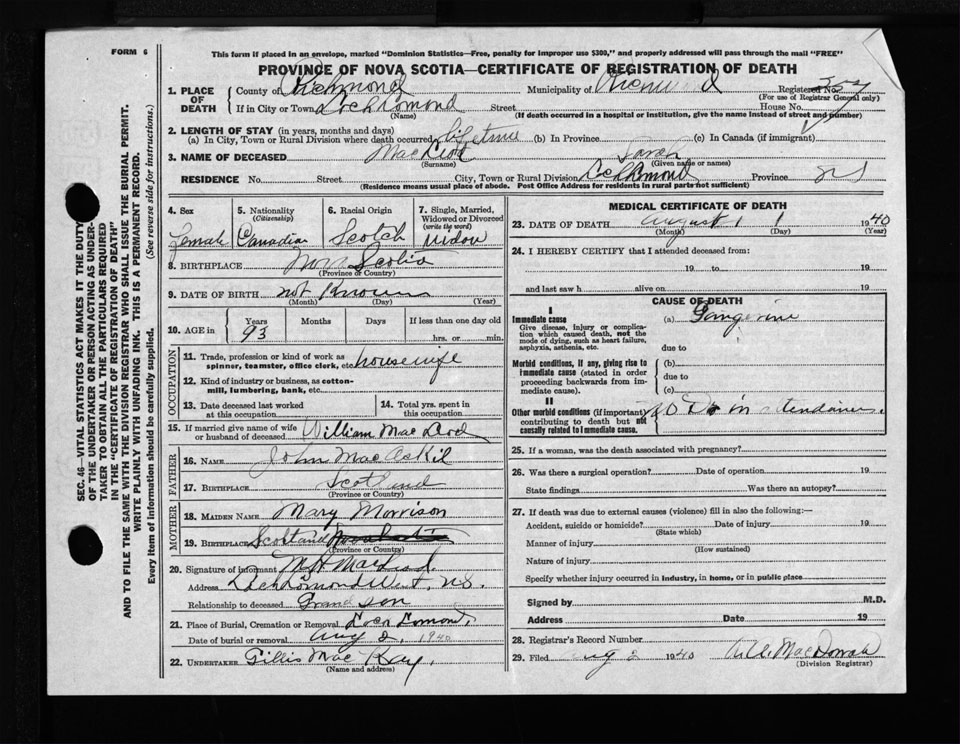 FORM 6
This form if placed in an envelope, marked "Dominion Statistics—Free, penalty for improper use $300," and properly addressed will pass through the mail "FREE"
PROVINCE OF NOVA SCOTIA—CERTIFICATE OF REGISTRATION OF DEATH
1. PLACE OF DEATH
County of Richmond Municipality of Richmond Registered No.
(For use of Registrar General only)
If in City or Town Loch Lomond Street House No.
(Name) (If death occurred in a hospital or institution, give the name instead of street and number)
2. LENGTH OF STAY (in years, months and days)
(a) In City, Town or Rural Division where death occurred lifetime (b) In Province (c) In Canada (if immigrant)
3. NAME OF DECEASED MacLeod Sarah
(Surname) (Given name or names)
RESIDENCE No. Street City, Town or Rural Division L Lomond Province NS
(Residence means usual place of abode. Post Office Address for residents in rural parts not sufficient)
4. Sex Female
5. Nationality (Citizenship) Canadian
6. Racial Origin Scotch
7. Single, Married, Widowed or Divorced (write the word) Widow
8. BIRTHPLACE Nova Scotia
(Province or Country)
9. DATE OF BIRTH not Known
(Month) (Day) (Year)
10. AGE in Years 93 Months Days If less than one day old hrs. or min.
OCCUPATION
11. Trade, profession or kind of work as spinner, teamster, office clerk, etc. housewife
12. Kind of industry or business, as cotton-mill, lumbering, bank, etc.
13. Date deceased last worked at this occupation
14. Total yrs. spent in this occupation
15. If married give name of wife or husband of deceased William MacLeod
FATHER
16. NAME John MacAskil
17. BIRTHPLACE Scotland
(Province or Country)
MOTHER
18. MAIDEN NAME Mary Morrison
19. BIRTHPLACE Scotland
(Province or Country)
20. Signature of informant MacLeod.
Address Loch Lomond West, N.S.
Relationship to deceased Grandson
21. Place of Burial, Cremation or Removal Loch Lomond,
Date of burial or removal Aug 2, 1940
22. UNDERTAKER Gillis MacKay.
(Name and address)
MEDICAL CERTIFICATE OF DEATH
23. DATE OF DEATH August 1 1940
(Month) (Day) (Year)
24. I HEREBY CERTIFY that I attended deceased from:
19 to 19
and last saw h alive on 19
CAUSE OF DEATH
I
Immediate cause
Give disease, injury or complication which caused death, not the mode of dying, such as heart failure, asphyxia, asthenia, etc.
(a) Gangerine
due to
Morbid conditions, if any, giving rise to immediate cause (stated in order proceeding backwards from immediate cause).
(b)
due to
(c)
II
Other morbid conditions (if important) contributing to death but not causally related to immediate cause.
no Dr in attendance.
25. If a woman, was the death associated with pregnancy?
26. Was there a surgical operation? Date of operation 19
State findings Was there an autopsy?
27. If death was due to external causes (violence) fill in also the following:—
Accident, suicide or homicide? Date of injury 19
(State which)
Manner of injury
(How sustained)
Nature of injury
Specify whether injury occurred in industry, in home, or in public place
Signed by M.D.
Address Date 19
28. Registrar's Record Number
29. Filed Aug 2 1940
(Division Registrar)
SEC. 46—VITAL STATISTICS ACT MAKES IT THE DUTY
OF THE UNDERTAKER OR PERSON ACTING AS UNDERTAKER TO OBTAIN ALL THE PARTICULARS REQUIRED
IN THE "CERTIFICATE OF REGISTRATION OF DEATH"
AND TO FILE THE SAME WITH THE DIVISION REGISTRAR WHO SHALL ISSUE THE BURIAL PERMIT.
WRITE PLAINLY WITH UNFADING INK. THIS IS A PERMANENT RECORD.
Every item of information should be carefully supplied. (See reverse side for instructions.)